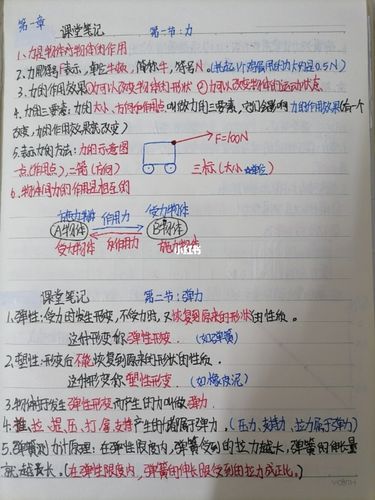 第一章
课堂笔记 第一节:力
1、力是物体对物体的作用
2、力用符号F表示,单位牛顿,简称牛,符号N。(托起1个鸡蛋用的力大约是0.5N)
3、力的作用效果①力可以改变物体的形状 ②力可以改变物体的运动状态
4、力的三要素:力的大小、方向和作用点叫做力的三要素,它们会影响力的作用效果(有一个
改变,力的作用效果就改变)
5、表示力的方法:力的示意图 F=100N
一点(作用点),二箭(方向) 三标(大小 单位)
6、物体间力的作用是相互的
施力物体 作用力 受力物体
A物体 B物体
受力物体 反作用力 施力物体
小红书
课堂笔记 第二节:弹力
1、弹性:受力时发生形变,不受力时,又恢复到原来的形状的性质。
这种形变你弹性形变.(如弹簧)
2、塑性:形变后不能恢复到原来的形状的性质。
这种形变你塑性形变.(如橡皮泥)
3、物体由于发生弹性形变而产生的力叫做弹力.
4、推、拉、提、压、打、拿、支持产生的力都属于弹力。(压力、支持力、拉力属于弹力)
5、弹簧测力计原理:在弹性限度内,弹簧受到的拉力越大,弹簧的伸长量
就越长。(在弹性限度内,弹簧的伸长跟受到的拉力成正比。)